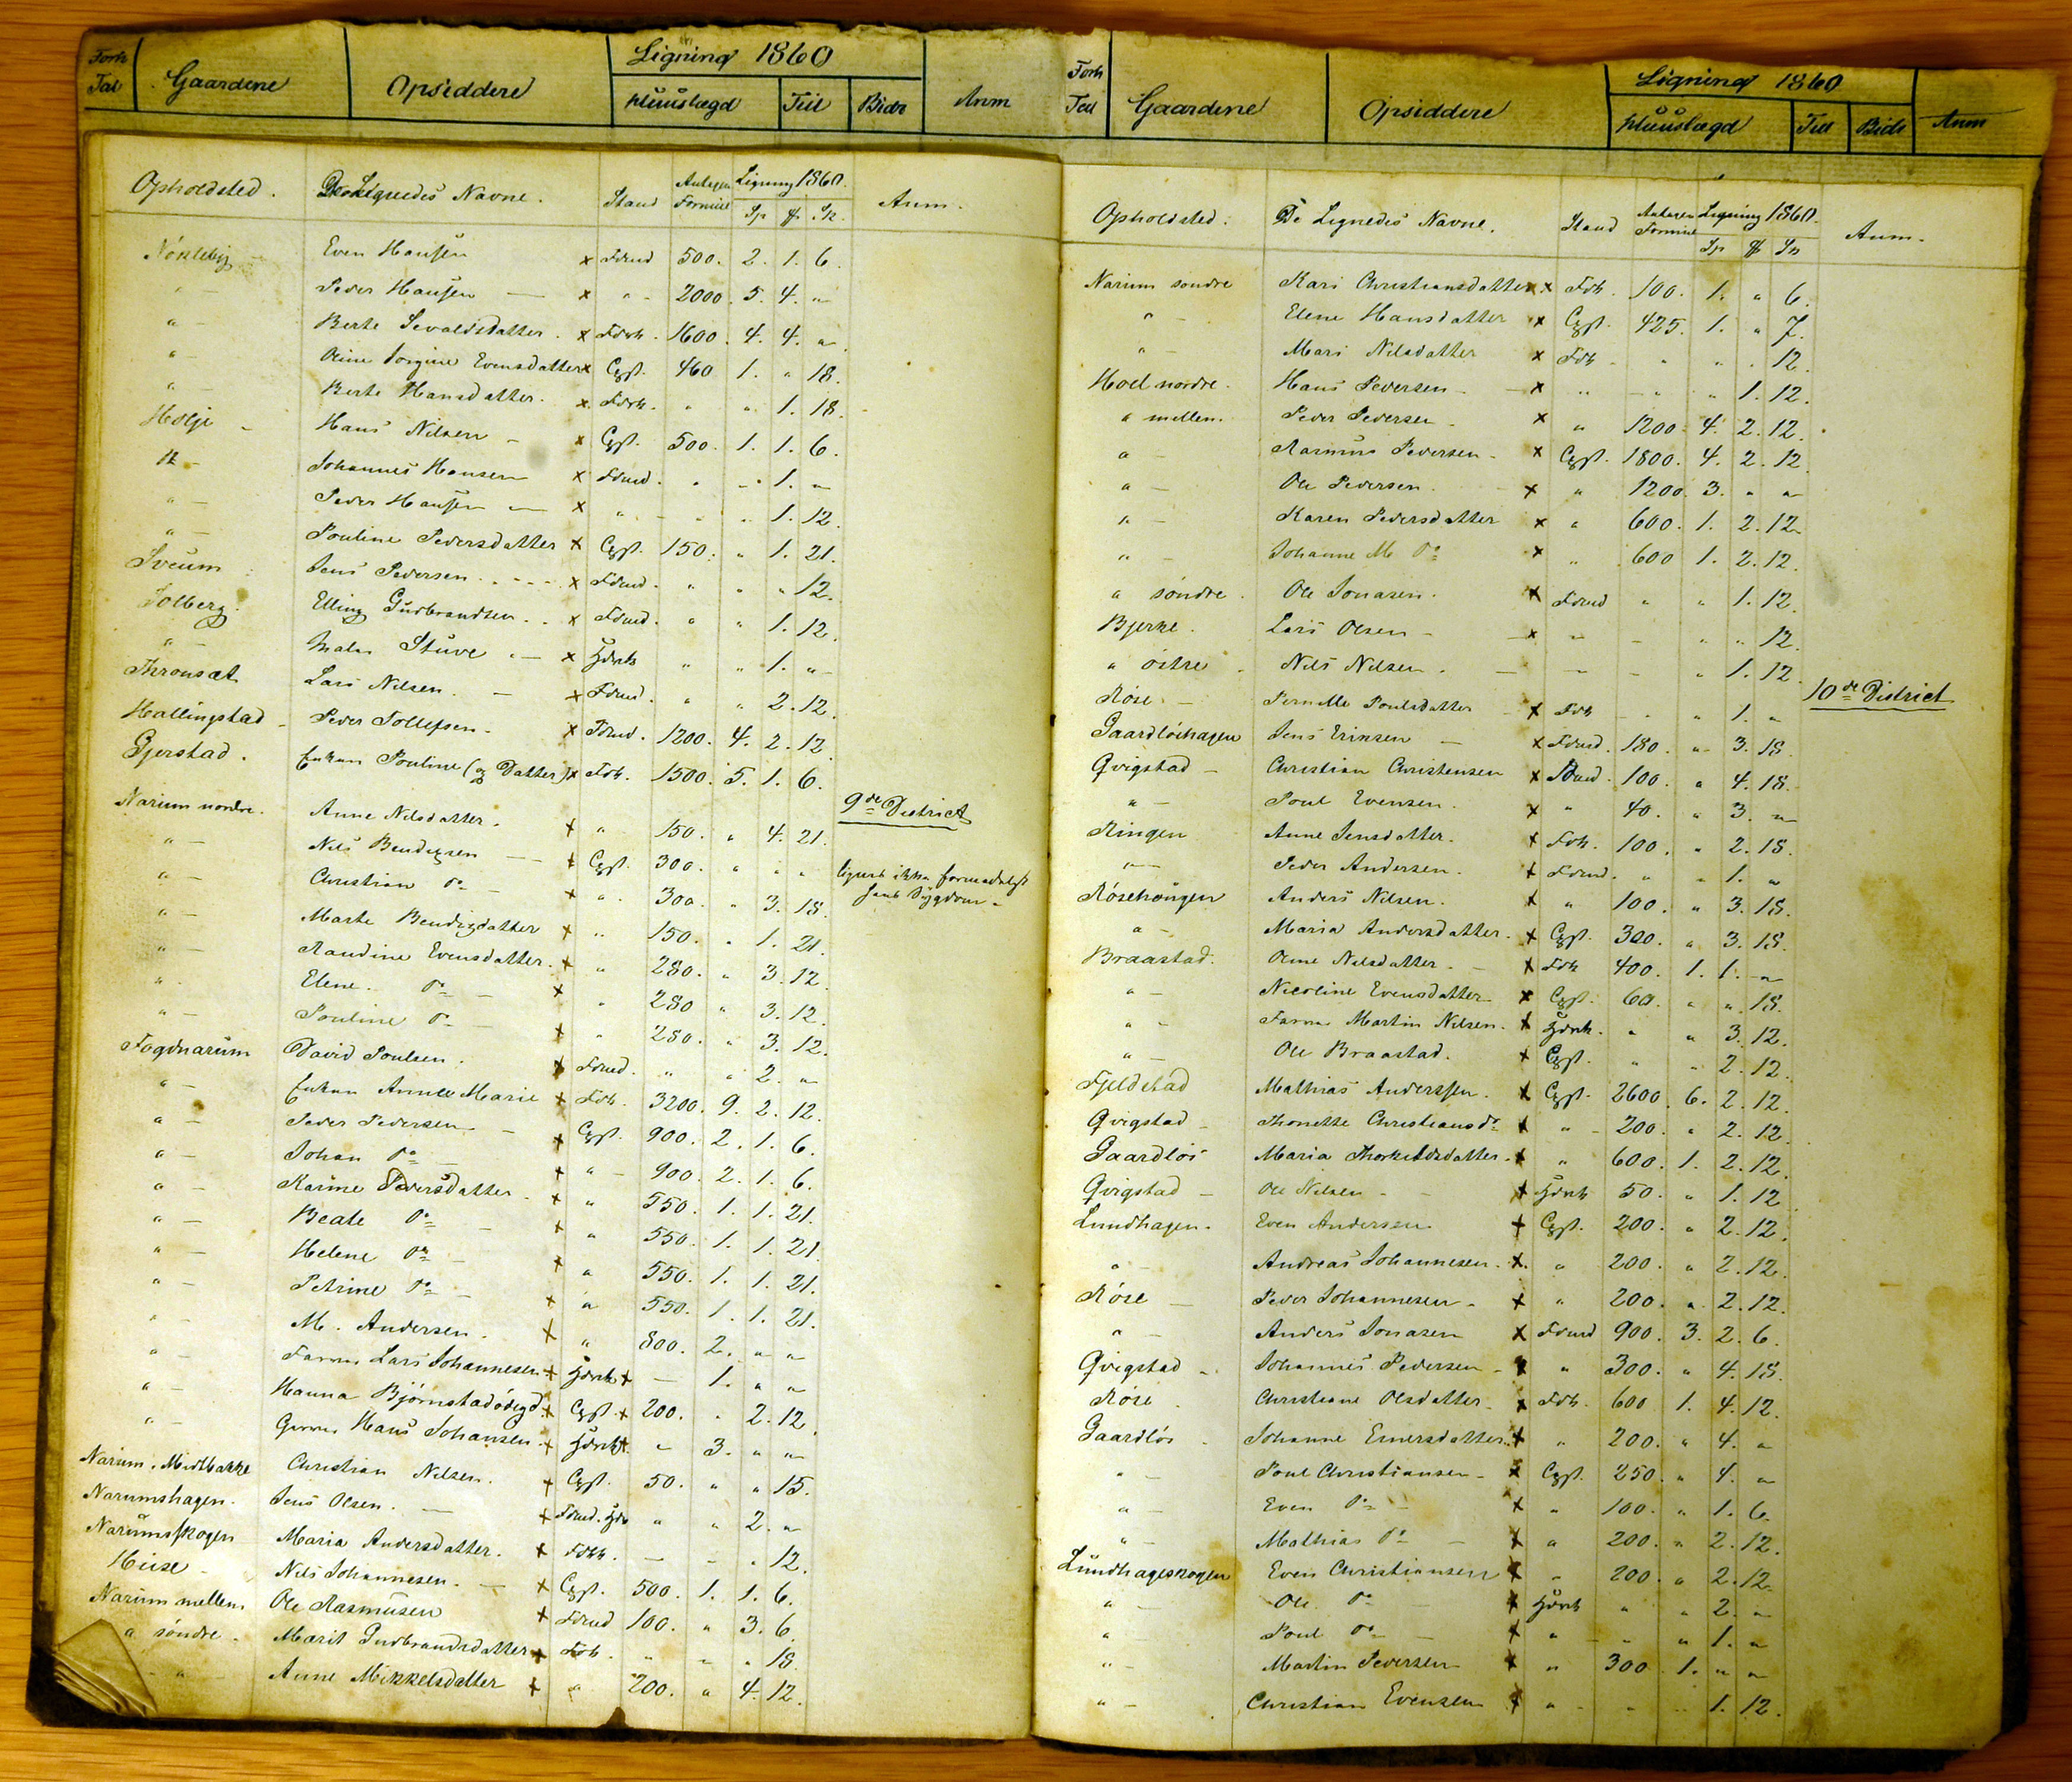 Forh Tal Gaardene Opsiddere Ligning 1860
Huuslægd Teil Bidr Anm
Opholdsted. De Lignedes Navne. Stand Antagen Formue Ligning 1860. Anm.
Sp # Sk.
Nöklebÿ Even Hansen x Fdmd 500. 2. 1. 6.
" - Peder Hansen — x " - 2000. 5. 4. "
" - Berte Sevaldsdatter. x Fdrk. 1600. 4. 4. "
" - Oline Jorgine Evensdatter x Cgst. 460 1. " 18.
" - Berte Hansdatter. x Fdrk. " " 1. 18.
Holje - Hans Nilsen - x Cgst. 500. 1. 1. 6.
" - Johannes Hansen x Fdmd. " " 1. "
" - Peder Hansen — x " - " " 1. 12.
" - Pouline Pedersdatter x Cgst. 150. " 1. 21.
Sveum Jens Pedersen x Fdmd. " " " 12.
Solberg. Elling Gudbrandsen x Fdmd. " " 1. 12.
" - Maler Stuve — x " " 1. "
Thronsæt Lars Nilsen. — x Fdmd. " " 2. 12.
Hallingstad - Peder Tollefsen. x Fdmd. 1200. 4. 2. 12.
Gjerstad. Enken Pouline (og Datter) x Fdk. 1500. 5. 1. 6.
9de District
Narum nordre. Anne Nilsdatter. x " 150. " 4. 21.
" - Nils Bendigsen — x Cgst. 300. " " " lignes ikke formedelst
" - Christian Do x " 300. " 3. 18. Sygdom.
" - Marte Bendigdatter x " 150. " 1. 21.
" - Randine Evensdatter. x " 280. " 3. 12.
" - Elene. Do - x " 280 " 3. 12.
" - Pouline Do - x " 280. " 3. 12.
Fogdnarum David Poulsen. x Fdmd. " " 2. "
" - Enken Anne Marie x Fdk. 3200. 9. 2. 12.
" - Peder Pedersen - x Cgst. 900. 2. 1. 6.
" - Johan Do - x " - 900. 2. 1. 6.
" - Karine Pedersdatter. x " 550. 1. 1. 21.
" - Beate Do - x " 550. 1. 1. 21
" - Helene Do - x " 550. 1. 1. 21.
" - Petrine Do - x " 550. 1. 1. 21.
" - M. Andersen. x " 800. 2. " "
" - Lars Johannesen x — 1. " "
" - Hanna Björnstadödegd. x Cgst. x 200. " 2. 12.
" - Hans Johansen. x " 3. " "
Narum. Midtbakke Christian Nilsen. x Cgst. 50. " " 15.
Narumshagen. Jens Olsen. — x Fdmd. " " 2. "
Narumskogen Maria Andersdatter. x Fdkk. — - " 12.
Huse - Nils Johannesen. — x Cgst. 500. 1. 1. 6.
Narum mellem Ole Rasmusen x Fdmd 100. " 3. 6.
" söndre. Marit Gudbrandsdatter x Fdk. " " " 18.
" - Anne Mikkelsdatter x " 200. " 4. 12.
Forh Tal Gaardene Opsiddere Ligning 1860
Huuslægd Teil Bidr Anm
Opholdsted. De Lignedes Navne. Stand Antagen Formue Ligning 1860. Anm.
Sp # Sk
Narum söndre Kari Christiansdatter x Fdk. 100. 1. " 6.
" - Elene Hansdatter x Cgst. 425. 1. " 7.
" - Mari Nilsdatter x Fdk - " " " 12.
Hoel nordre. Hans Pedersen - x " - " " 1. 12.
" mellem. Peder Pedersen - x " 1200. 4. 2. 12.
" - Rasmus Pedersen - x Cgst. 1800. 4. 2. 12.
" - Ole Pedersen. x " 1200. 3. " "
" - Karen Pedersdatter x " 600. 1. 2. 12.
" - Johanne M. Do x " 600 1. 2. 12.
" söndre. Ole Jonasen. x Fdmd " " 1. 12.
Bjerke. Lars Olsen - x " - " " 12.
" östre. Nils Nilsen. — " - " 1. 12.
10de District
Röse - Pernille Poulsdatter x Fdk - " " 1. "
Gaardlöshagen Jens Eriksen — x Fdmd. 180. " 3. 18.
Qvigstad - Christian Christensen x Fdmd. 100. " 4. 18.
" - Poul Evensen. x " 40. " 3. "
Ringen Anne Jensdatter. x Fdk. 100. " 2. 18.
" - Peder Andersen. x Fdmd. " " 1. "
Rösehougen Anders Nilsen. x " 100. " 3. 18.
" - Maria Andersdatter. x Cgst. 300. " 3. 18.
Braastad. Oline Nilsdatter. - x Fdk 400. 1. 1. "
" - Nicoline Evensdatter x Cgst. 60. " " 18.
" - Martin Nilsen. x " " 3. 12.
" - Ole Braastad. x Cgst. " " 2. 12.
Fjeldstad Mathias Anderssen. x Cgst. 2600. 6. 2. 12.
Qvigstad - Thonette Christiansdr x " - 200. " 2. 12.
Gaardlös Maria Thorkildsdatter. x " 600. 1. 2. 12.
Qvigstad - Ole Nilsen - x 50. " 1. 12
Lundhagen. Even Andersen x Cgst. 200. " 2. 12.
" - Andreas Johannesen. x " 200. " 2. 12.
Röse - Peder Johannesen. x " 200. " 2. 12.
" - Anders Jonasen x Fdmd 900. 3. 2. 6.
Qvigstad - Johannes Pedersen - x " 300. " 4. 18.
Röse. Christiane Olsdatter. x Fdk. 600 1. 4. 12.
Gaardlös - Johanne Einersdatter. x " 200. " 4. "
" - Poul Christiansen - x Cgst. 250. " 4. "
" - Even Do - x " 100. " 1. 6.
" - Mathias Do - x " 200. " 2. 12.
Lundhageskogen Even Christiansen x " 200. " 2. 12.
" - Ole Do - x " " 2. "
" - Poul Do - x " - " " 1. "
" - Martin Pedersen x " 300. 1. " "
" - Christian Evensen x " - " " 1. 12.